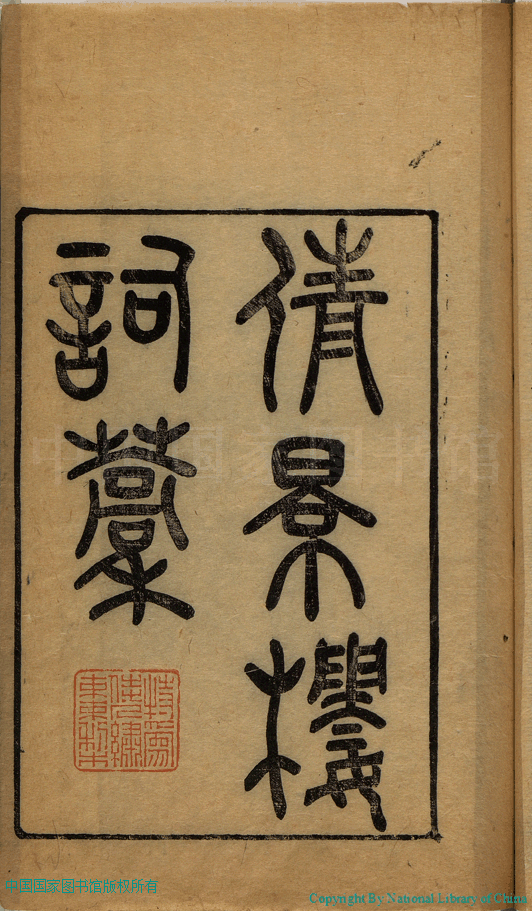 倩景樓
詞藁
中国国家图书馆
中国国家图书馆版权所有
Copyright By National Library of China